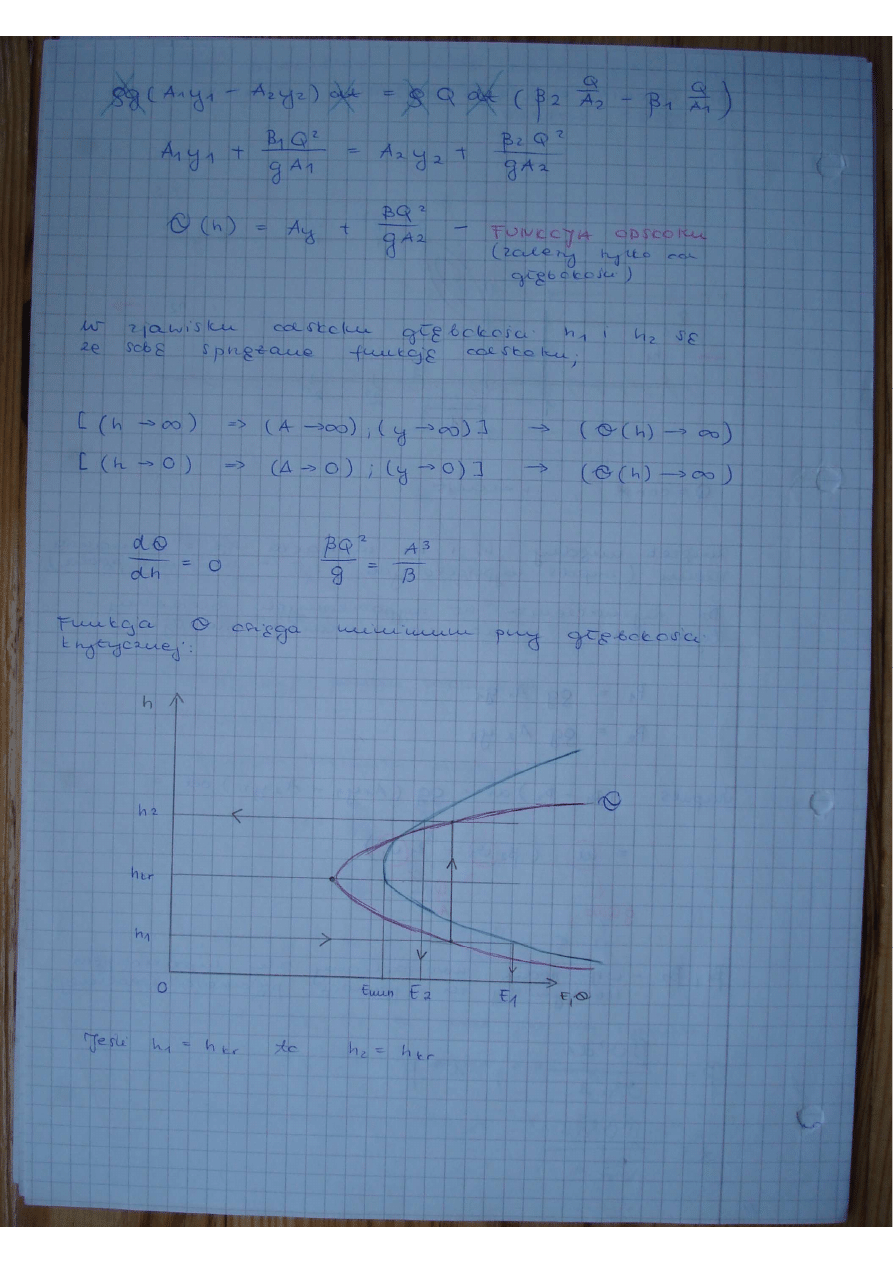 ρg (A₁y₁ - A₂y₂) dt = ρ Q dt (β₂ Q/A₂ - β₁ Q/A₁)
A₁y₁ + β₁Q²/gA₁ = A₂y₂ + β₂Q²/gA₂
Θ(h) = Ay + βQ²/gA₂ - FUNKCJA ODSKOKU
(zależy tylko od
głębokości)
W zjawisku odskoku głębokości h₁ i h₂ są
ze sobą sprzężane funkcją odskoku;
[(h → ∞) => (A → ∞), (y → ∞)] → (Θ(h) → ∞)
[(h → 0) => (A → 0); (y → 0)] → (Θ(h) → ∞)
dΘ/dh = 0 βQ²/g = A³/B
Funkcja Θ osiąga minimum przy głębokości
krytycznej:
h
h₂
Θ
hkr
h₁
0 Emin E₂ E₁ E,Θ
Jeśli h₁ = hkr to h₂ = hkr